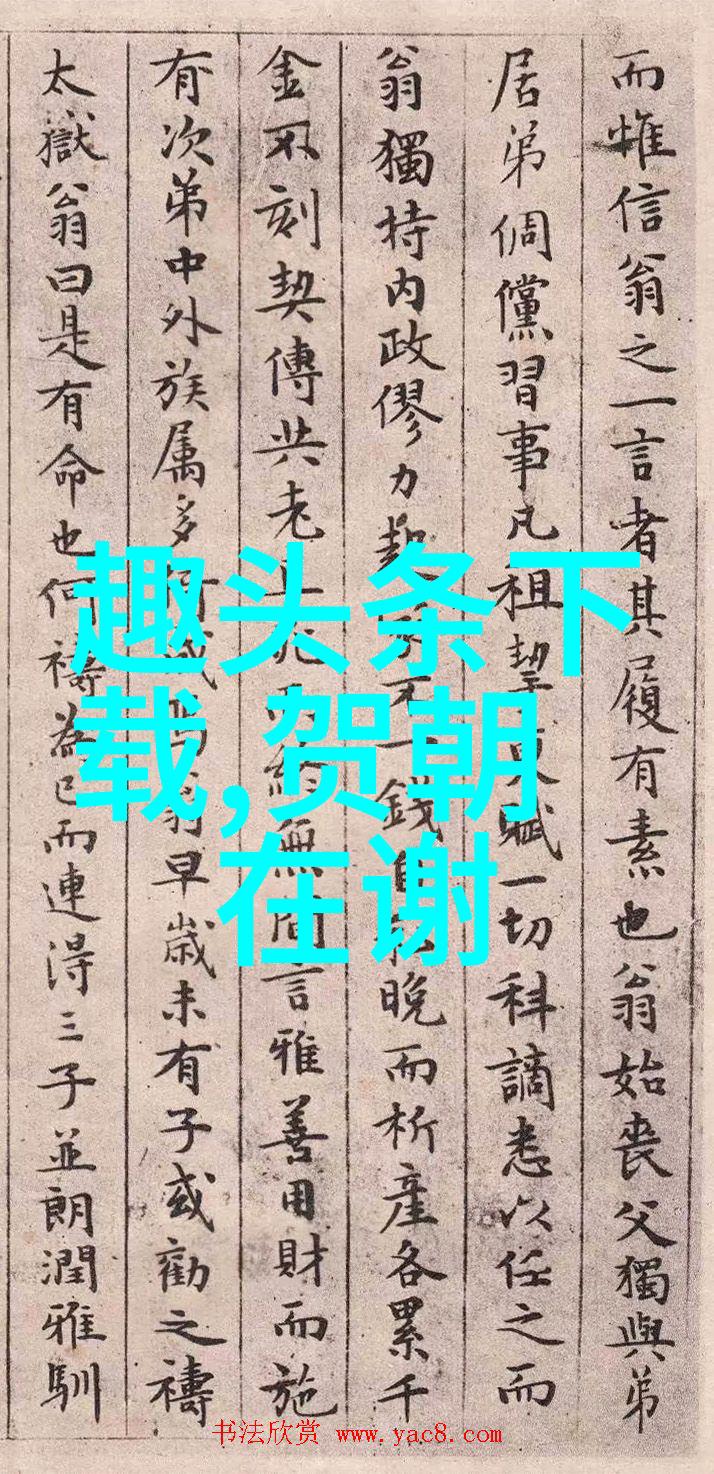 而惟信翁之一言者其履有素也翁始喪父獨與弟
居弟倜儻習事凡租契更賦一切科謫悉以任之而
翁獨持内政僇力起不一錢自私晚而析産各累千
金不刻契傳共老無間言雅善用財而施
有次弟中外族属多翁早歲未有子或勸之禱
太嶽翁曰是有命也何禱為已而連得三子並朗潤雅馴
趣头条下
载,贺朝
在谢
书法欣赏 www.yac8.com